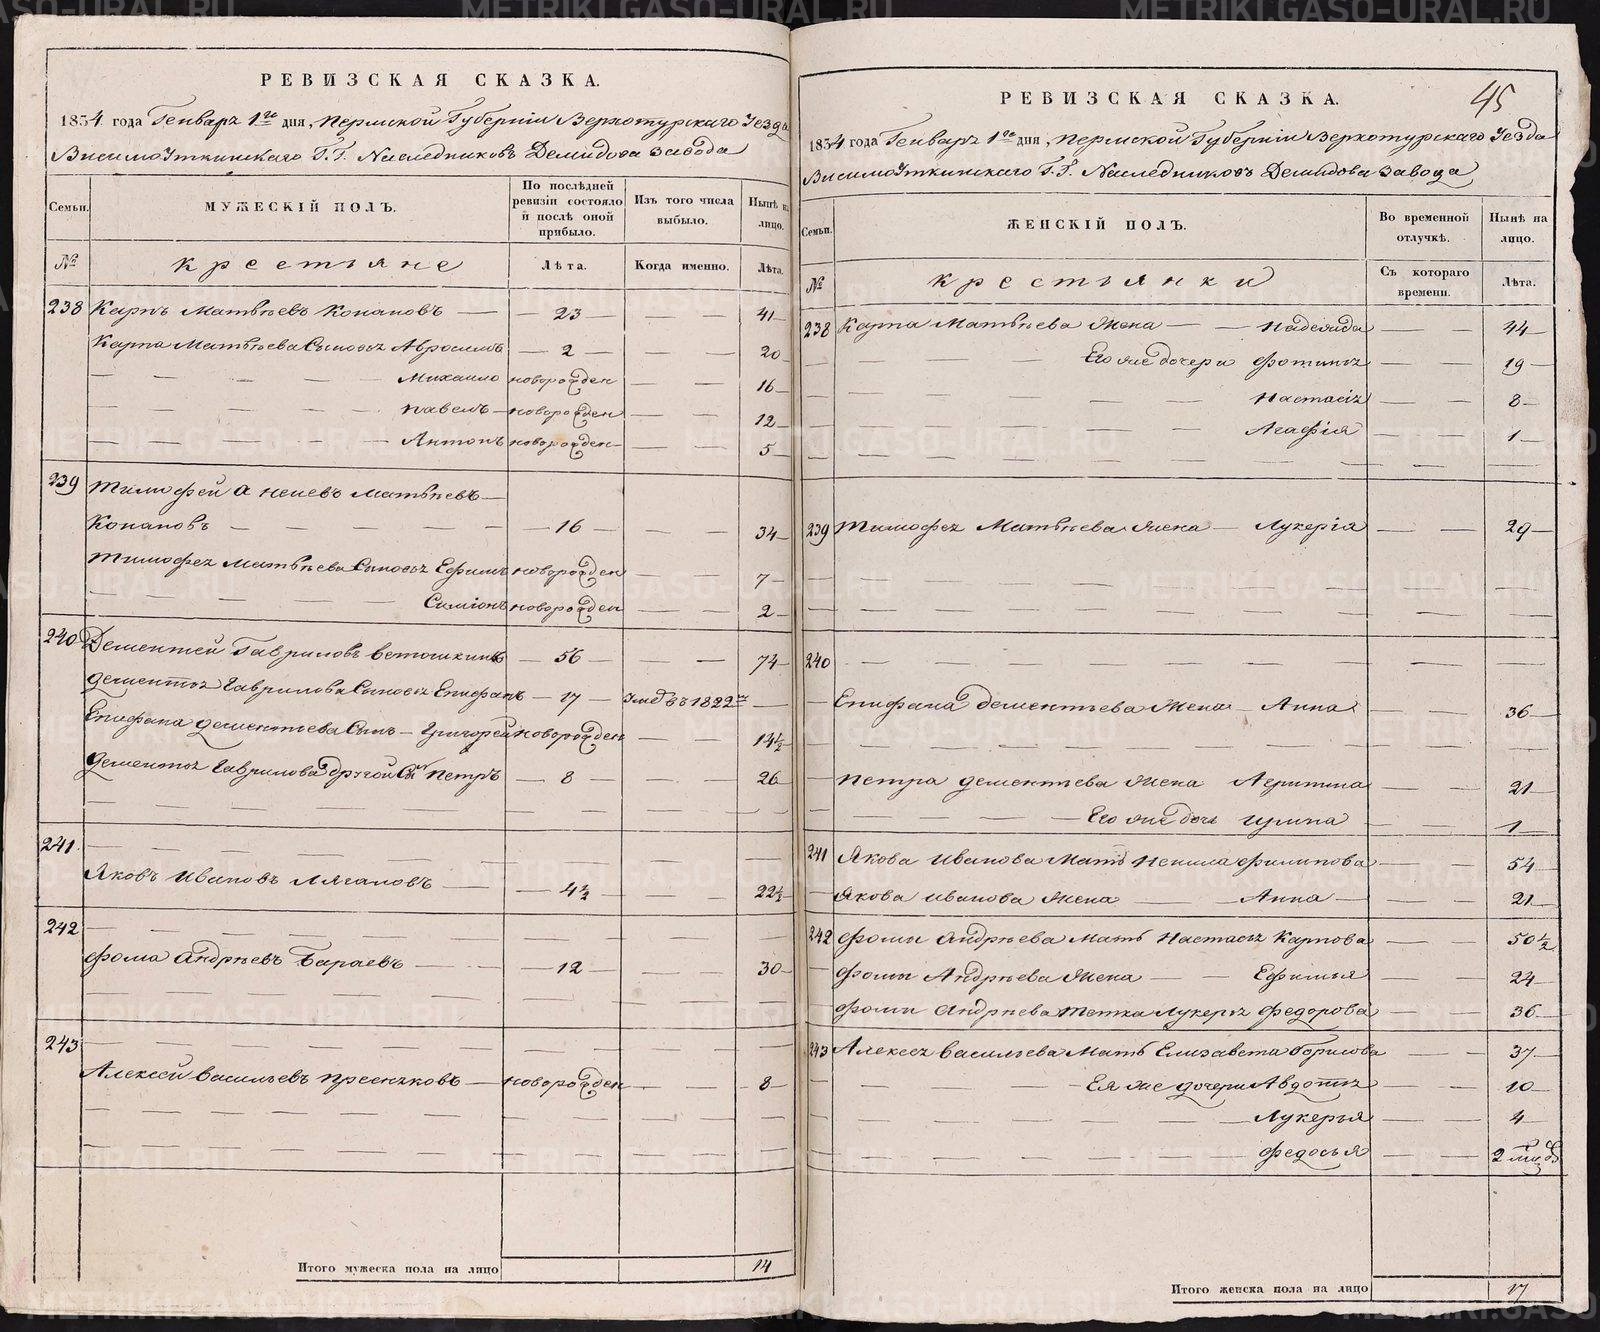 РЕВИЗСКАЯ СКАЗКА.
1834 года Генваря 1го дня, Пермской Губерніи Верхотурскаго Уезда
ВисимоУткинскаго Г.Г. Наследниковъ Демидова завода
Семьи.
МУЖЕСКІЙ ПОЛЪ.
По последней ревизіи состояло и после оной прибыло.
Изъ того числа выбыло.
Ныне на лицо.
№
крестьяне
Лета.
Когда именно.
Лета.
238 Карпъ Матвеевъ Конаковъ — 23 — — 41
Карпа Матвеева Сыновья Авросимъ — 2 — — 20
Михаило новорожден — — 16
Павелъ новорожден — — 12
Антонъ новорожден — — 5
239 Тимофей Матвеевъ
Конаковъ — 16 — — 34
Тимофея Матвеева Сыновья Ефимъ новорожден — 7
Симіонъ новорожден — — 2
240 Дементей Гавриловъ Ветошкинъ — 56 — — 74
Дементья Гаврилова Сыновья Епифанъ — 17 — 1822
Епифана Дементьева Сынъ — Григорей новорожден — — 14½
Дементья Гаврилова другой Сынъ Петръ — 8 — — 26
241
Яковъ Ивановъ Лягаловъ — 4½ — — 22½
242
Фома Андреевъ Бараевъ — 12 — — 30
243
Алексей Васильевъ — новорожден — — 8
Итого мужеска пола на лицо 14
45
РЕВИЗСКАЯ СКАЗКА.
1834 года Генваря 1го дня, Пермской Губерніи Верхотурскаго Уезда
ВисимоУткинскаго Г.Г. Наследниковъ Демидова завода
Семьи.
ЖЕНСКІЙ ПОЛЪ.
Во временной отлучке.
Ныне на лицо.
№
крестьянки
Съ котораго времени.
Лета.
238 Карпа Матвеева Жена — Надежда — — 44
Его же дочери Фотинья — — 19
Настасья — — 8
Агафія — — 1
239 Тимофея Матвеева Жена — Лукерія — — 29
240
Епифана Дементьева Жена — Анна — — 36
Петра Дементьева Жена — — 21
Его же дочь Ирина — — 1
241 Якова Иванова Мать Ненила Филипова — — 54
Якова Иванова Жена — Анна — — 21
242 Фомы Андреева Мать Настасья Карпова — — 50½
Фомы Андреева Жена — Ефимья — — 24
Фомы Андреева тетка Лукерья Федорова — — 36
243 Алексея Васильева Мать Елизавета Борисова — — 37
Ея же дочери Авдотья — — 10
Лукерья — — 4
Федосья — — 2
Итого женска пола на лицо 17
METRIKI.GASO-URAL.RU